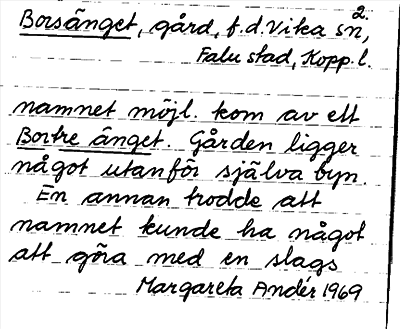 2.
Borsänget, gård, f.d. Vika sn,
Falu stad, Kopp. l.
namnet möjl. kom av ett
Bortre änget. Gården ligger
något utanför själva byn.
En annan trodde att
namnet kunde ha något
att göra med en slags
Margareta Andér 1969